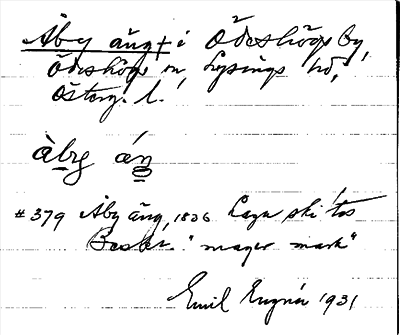 Åby äng + i Ödeshögs by,
Ödeshögs sn, Lysings hd,
Österg. l.
àbg áŋ
#379 Åby äng, 1826 Laga skifte
Beskr. "mager mark"
Emil 1931